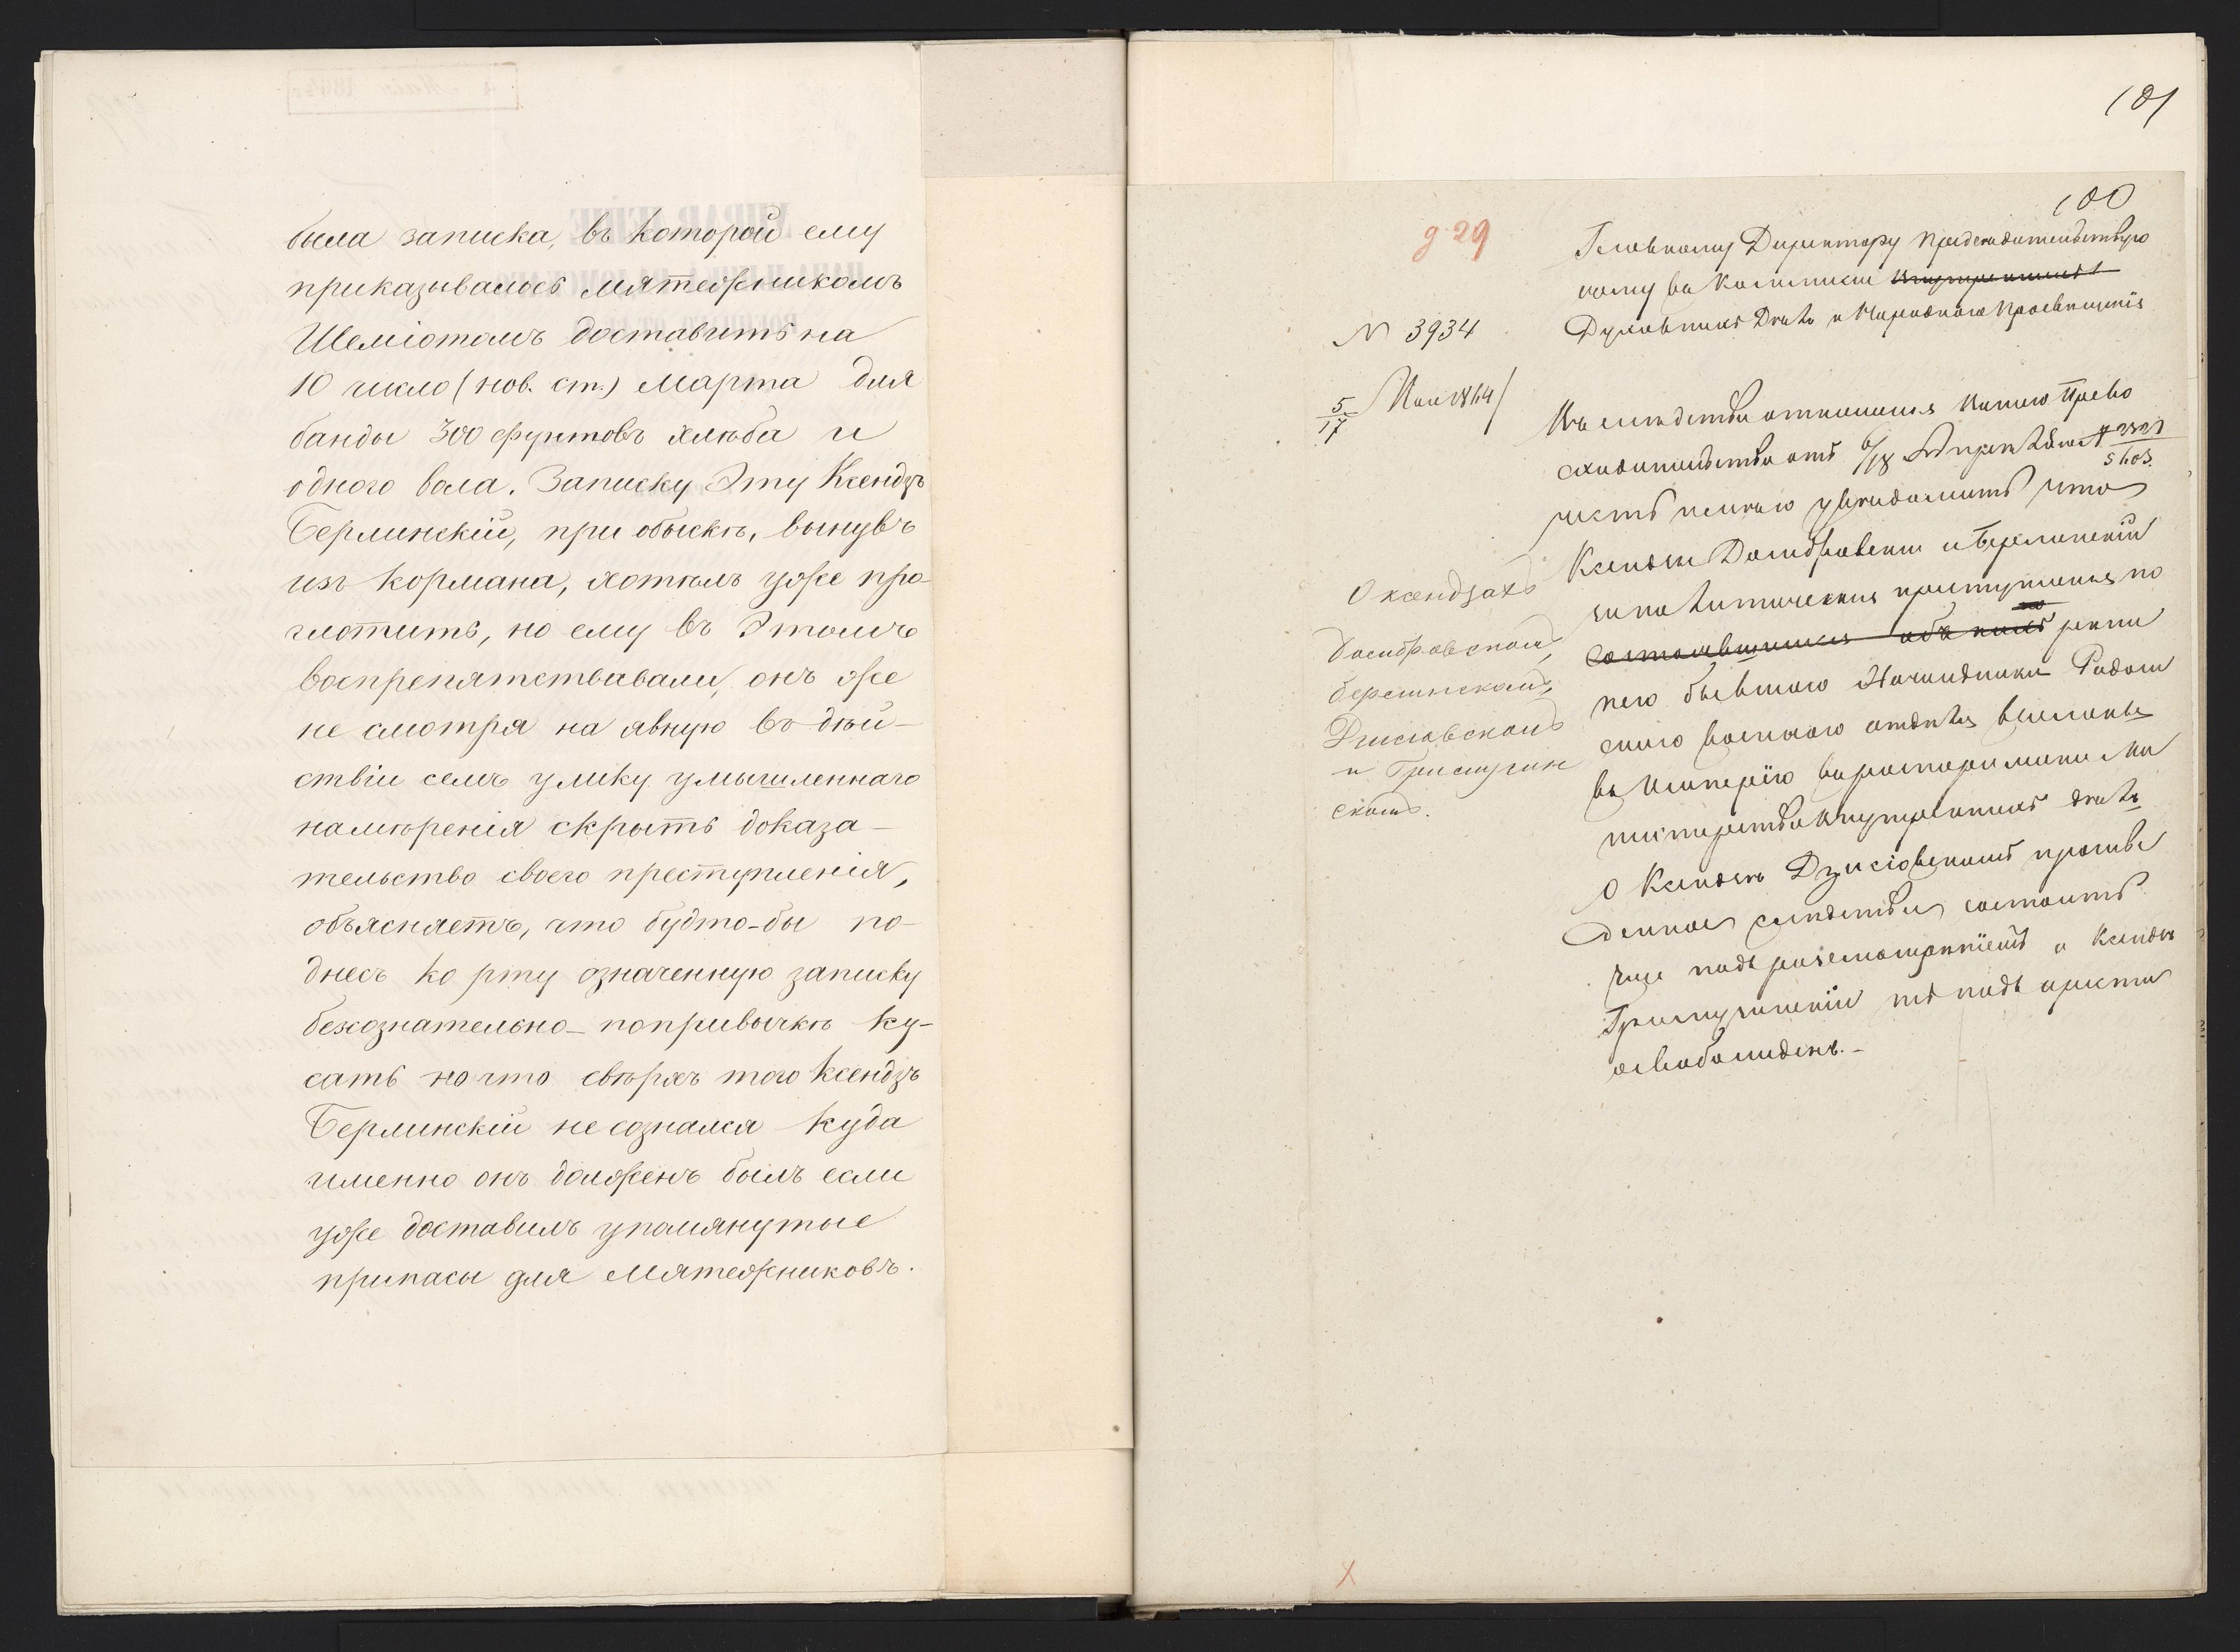 была записка, въ которой ему
приказывалось мятежникомъ
Шеміотомъ доставить на
10 число (нов. ст.) Марта для
банды 300 фунтовъ хлѣба и
одного вола. Записку Эту Ксендзъ
Берлинскій, при обыскѣ, вынувъ
изъ кормана, хотѣлъ уже про-
глотить, но ему въ Этомъ
воспрепятствавали, онъ же
не смотря на явную въ дѣй-
ствіи семъ улику умышленнаго
намѣренія скрыть доказа-
тельство своего преступленія,
объясняетъ, что будто-бы по-
днесъ ко рту означенную записку
безсознательно-попривычкѣ ку-
сать но что свѣрхъ того Ксендзъ
Берлинскій не сознался куда
именно онъ долженъ былъ если
уже доставилъ упомянутые
припасы для Мятежниковъ.
101
100
д 29
Главному Директору Предсѣдательствую
щему въ Коммисіи Внутреннихъ
Духовныхъ Дѣлъ и Народнаго Просвѣщенія
N 3934
5/17 Мая 1864
Въ слѣдствіе отношенія Вашего Прево
сходительства отъ 6/18 Апрѣля за №
честь имѣю увѣдомить что
Ксендзы Домбровскій и Берлинскій
за политическія преступленія по
состоявшимся объ нихъ рѣше
нію бывшаго Начальника Радом
скаго военнаго отдѣла высланы
въ Имперію въ распоряженіе Ми
нистерства Внутреннихъ дѣлъ
О Ксендзѣ Дзисіовскомъ произве
денное слѣдствіе состоитъ
еще подъ разсмотрѣніемъ а Ксендзъ
изъ подъ ареста
освобожденъ.-
О ксендзахъ
Домбровскомъ,
Берлинскомъ,
Дзисіовскомъ
и
скомъ.